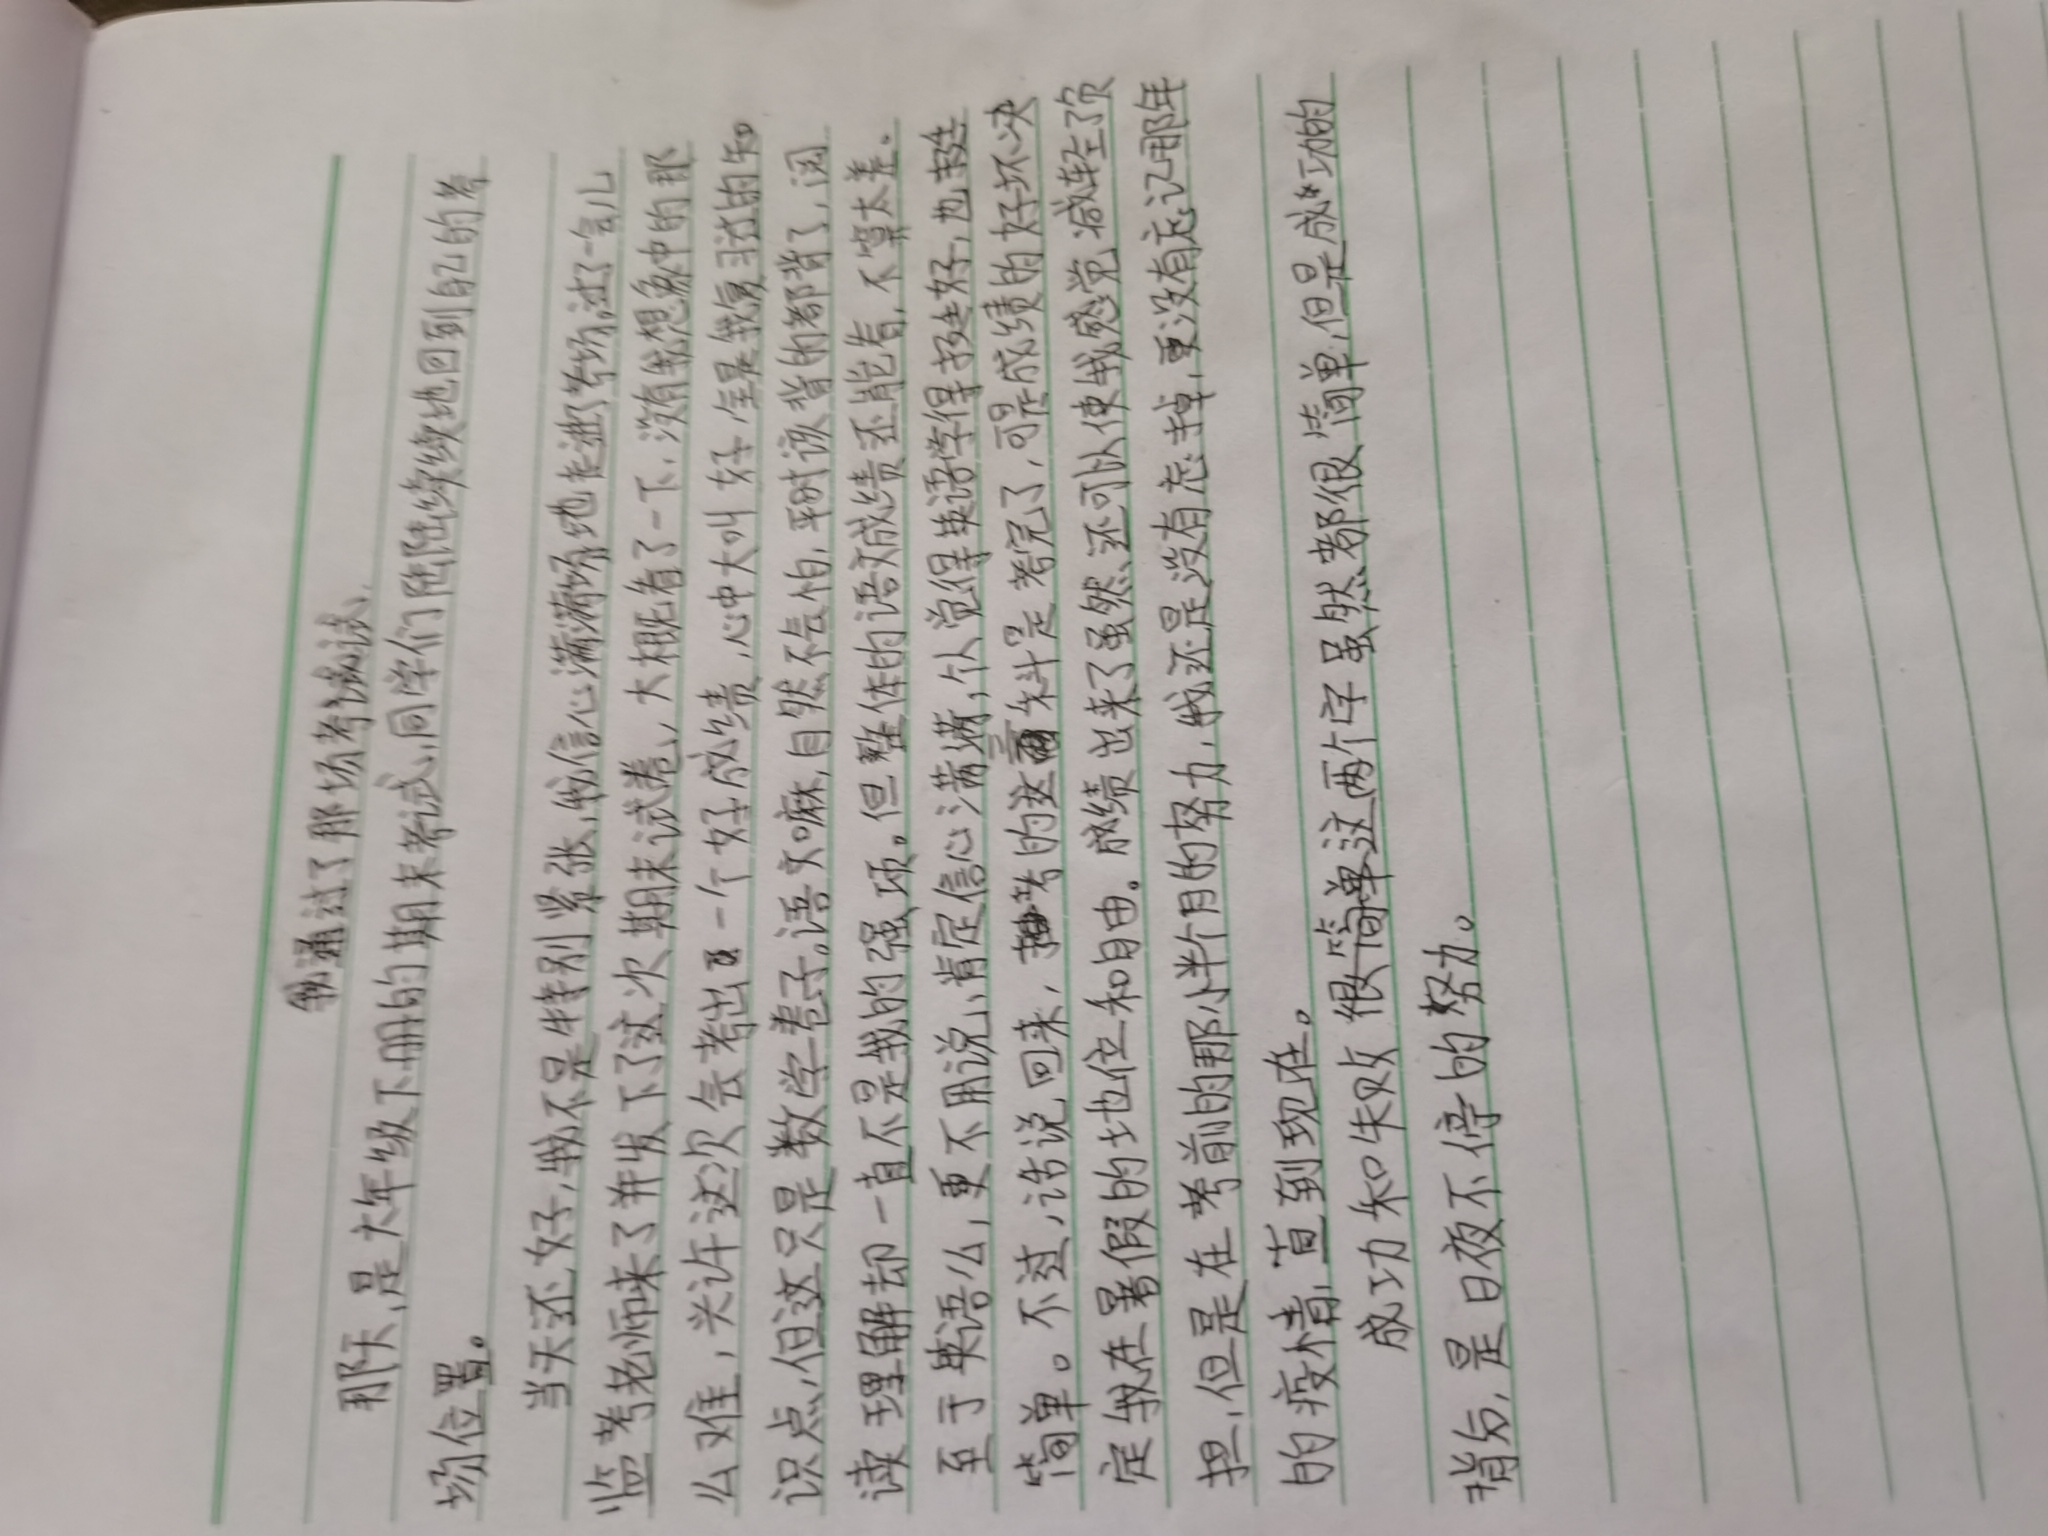 我通过了那场考试
那天,是六年级下册的期末考试,同学们陆陆续续地回到自己的考
场位置。
当天还好,我不是特别紧张,我信心满满地走进了考场,过了一会儿
监考老师来了并发下了这次期末试卷,大概看了一下,没有我想象中的那
么难,兴许这次会考出一个好成绩,心中大叫好,全是我复习过的知
识点,但这只是数学卷子。语文嘛,自然不会怕,平时该背的都背了,阅
读理解却一直不是我的强项。但整体的语文成绩还能看,不算太差。
至于英语么,更不用说,肯定信心满满,认觉得英语学得挺好,也挺
简单。不过,话说回来,考的这科是考完了,可是成绩的好坏决
定我在暑假的地位和自由。成绩出来了虽然还可以使我感觉减轻了负
担,但是在考前的那小半个月的努力,我还是没有忘掉,更没有忘记那年
的疫情,直到现在。
成功和失败很简单这两个字虽然都很简单,但是成功的
背后,是日夜不停的努力。